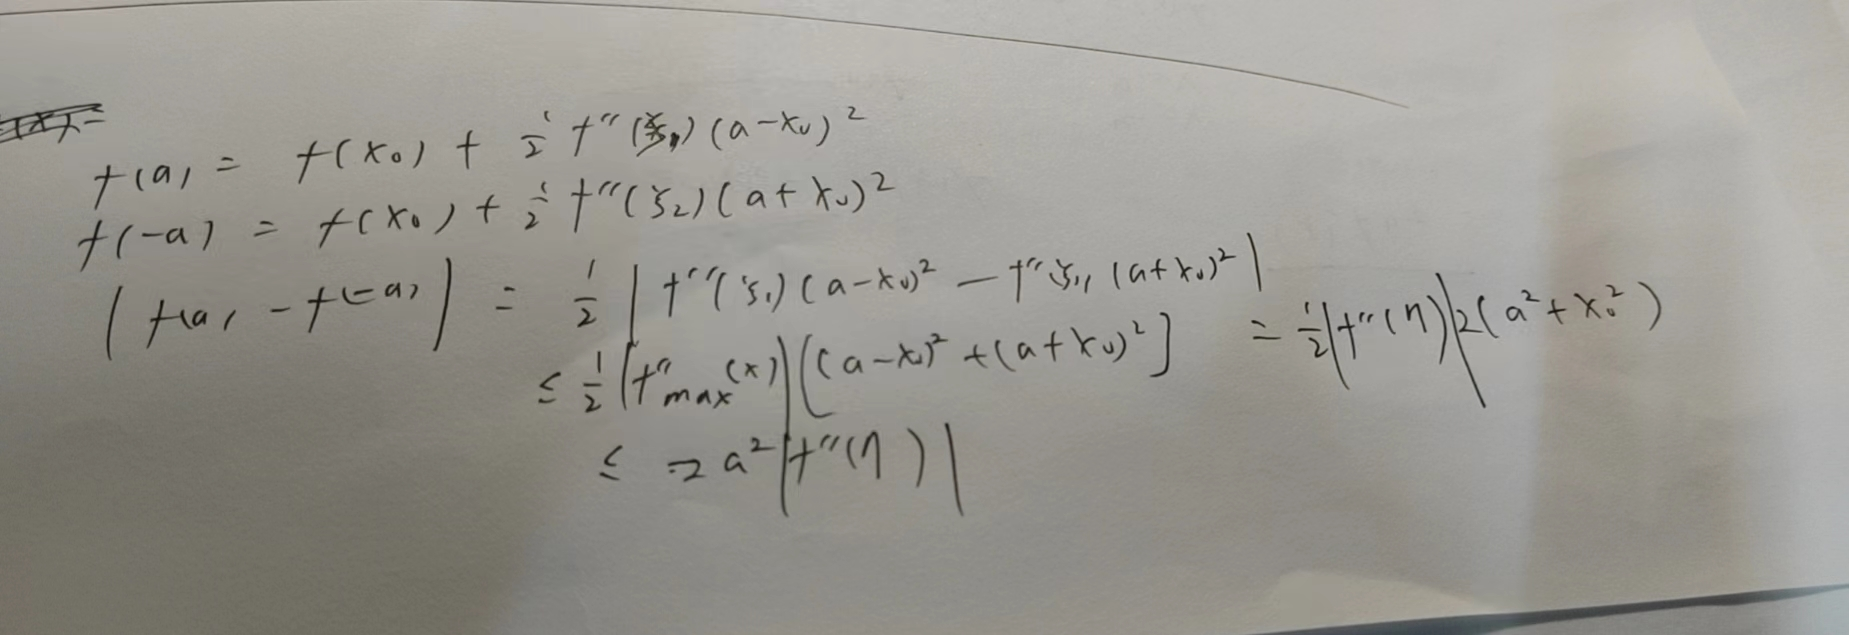 f(a) = f(x₀) + ½ f''(ξ₁)(a-x₀)²
f(-a) = f(x₀) + ½ f''(ξ₂)(a+x₀)²
|f(a) - f(-a)| = ½ |f''(ξ₁)(a-x₀)² - f''(ξ₁)(a+x₀)²|
≤ ½ |f''max(x)| [(a-x₀)² + (a+x₀)²] = ½ |f''(η)| 2(a² + x₀²)
≤ 2a² |f''(η)|